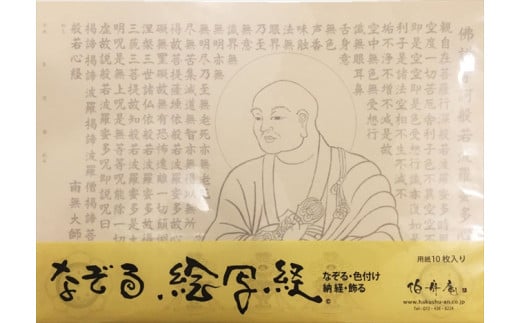 佛説摩訶般若波羅蜜多
観自在菩薩行深般若波羅蜜多
空度一切苦厄舎利子色不異空空不
即是空空即是色受想行識亦復如是
利子是諸法空相不生不滅
垢不浄不増不減是故
空中無色無受想行
識無眼耳鼻
舌身意
無色
声香
味触
法無
無意
識界
無明尽乃至無老死亦無老
尽無苦集滅道無智亦無得以無所
得故菩提薩埵依般若波羅蜜多故心
礙無罣礙故無有恐怖遠離一切顛倒
涅槃三世諸仏依般若波羅蜜多故
三藐三菩提故知般若波羅蜜多是大
明呪是無上呪是無等等呪能除一切
虚故説般若波羅蜜多呪即説呪曰
掲諦掲諦波羅掲諦波羅僧掲諦菩
般若心経
南無大師
なぞる・絵写経
なぞる・色付け
納経・飾る
©
用紙10枚入り
伯舟庵
www.hakushu-an.co.jp